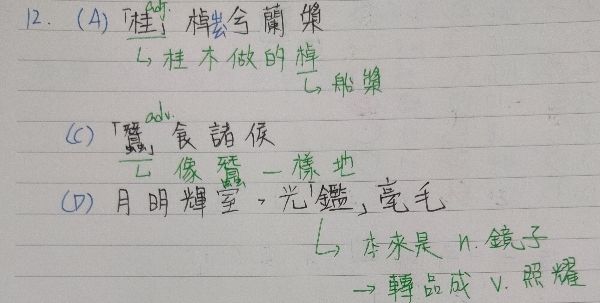 adj.
12. (A) 「桂」棹兮蘭槳
↳ 桂木做的棹
↳ 船槳
adv.
(C) 「蠶」食諸侯
↳ 像蠶一樣地
(D) 月明輝室,光「鑑」毫毛
↳ 本來是 n. 鏡子
→ 轉品成 v. 照耀